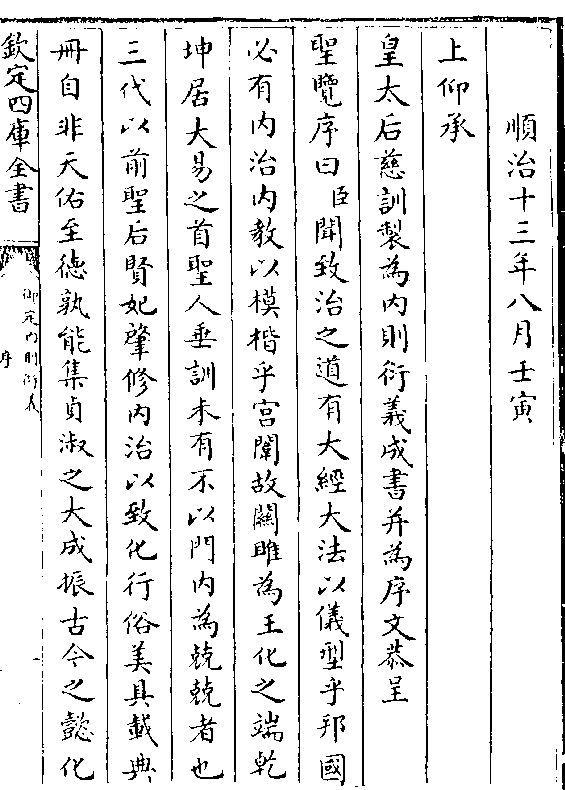 順治十三年八月壬寅
上仰承
皇太后慈訓製為内則衍義成書并為序文恭呈
聖覽序曰臣聞致治之道有大經大法以儀型乎邦國
必有内治内教以模楷乎宫闈故關雎為王化之端乾
坤居大易之首聖人垂訓未有不以門内為兢兢者也
三代以前聖后賢妃肇修内治以致化行俗美具載典
冊自非天佑至徳孰能集貞淑之大成振古今之懿化
欽定四庫全書
御定内則衍義
序